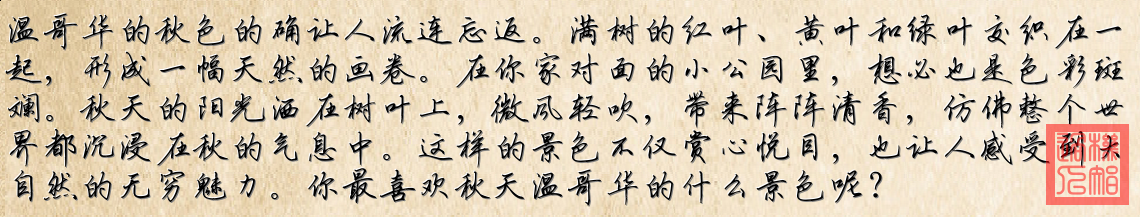 温哥华的秋色的确让人流连忘返。满树的红叶、黄叶和绿叶交织在一
起，形成一幅天然的画卷。在你家对面的小公园里，想必也是色彩斑
斓。秋天的阳光洒在树叶上，微风轻吹，带来阵阵清香，仿佛整个世
界都沉浸在秋的气息中。这样的景色不仅赏心悦目，也让人感受到大
自然的无穷魅力。你最喜欢秋天温哥华的什么景色呢？